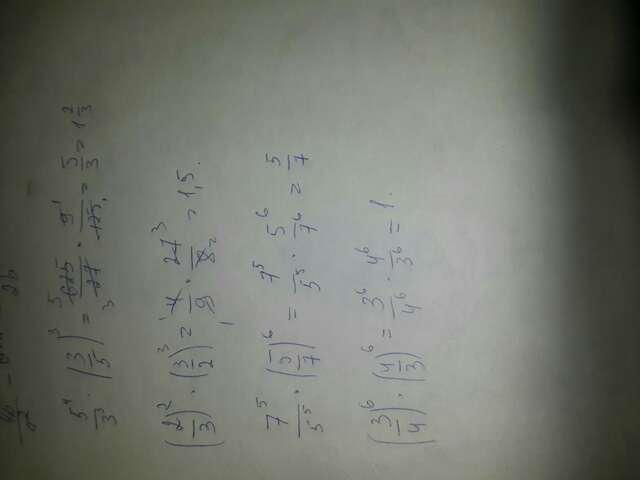 5⁴/3³ · (3/5)³ = 625/27 · 9/125 = 5/3 = 1 2/3
(2/3)² · (3/2)³ = 4/9 · 27/8 = 1,5.
7⁵/5⁵ · (5/7)⁶ = 7⁵/5⁵ · 5⁶/7⁶ = 5/7
(3/4)⁶ · (4/3)⁶ = 3⁶/4⁶ · 4⁶/3⁶ = 1.